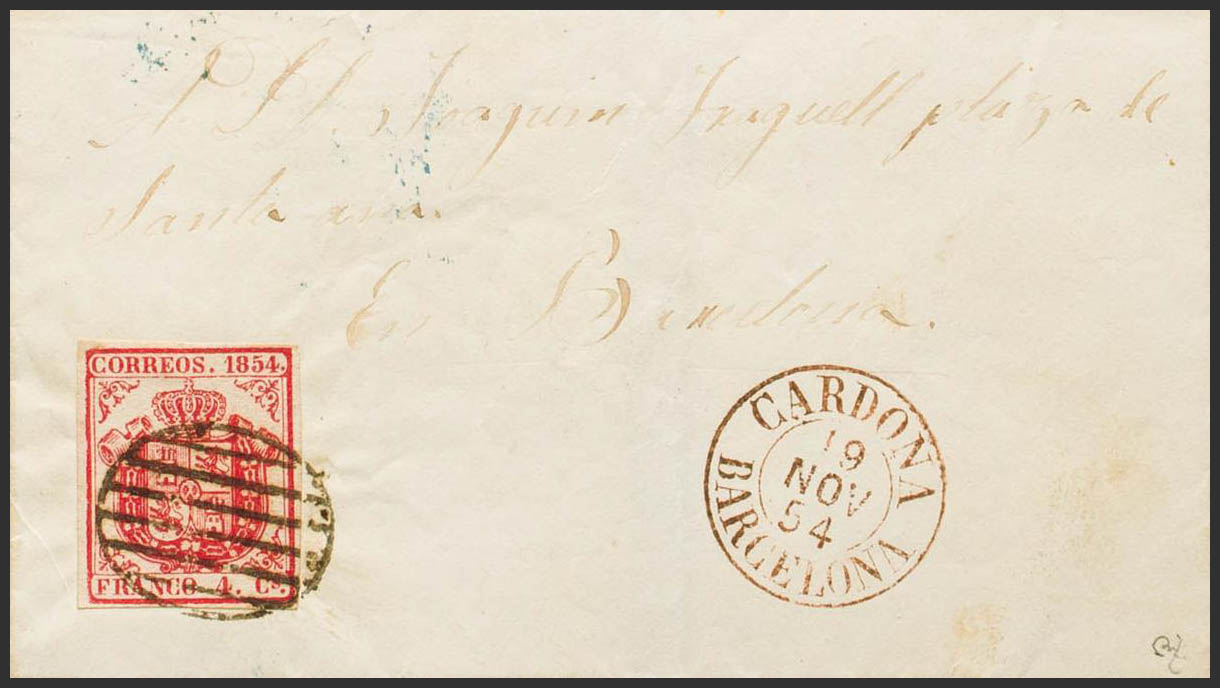 A. D. D. Joaquim plaza de
Santa ana.
En Barcelona.
CORREOS. 1854.
FRANCO 4. Cs.
CARDONA
19
NOV
54
BARCELONA